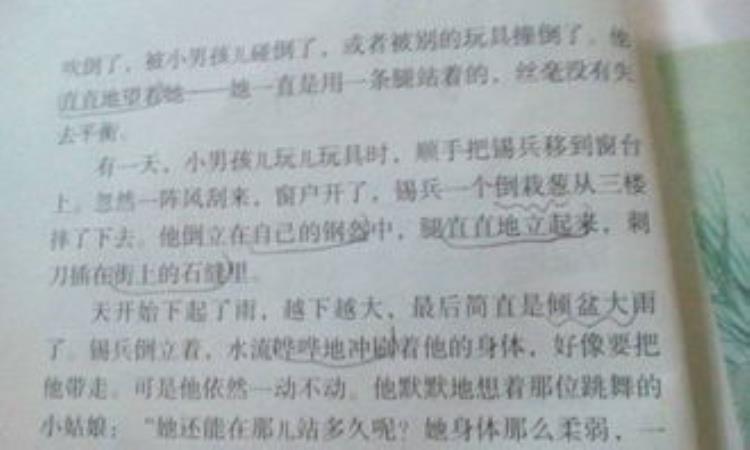 吹倒了，被小男孩儿碰倒了，或者被别的玩具撞倒了。他
直直地望着她——她一直是用一条腿站着的，丝毫没有失
去平衡。
有一天，小男孩儿玩儿玩具时，顺手把锡兵移到窗台
上。忽然一阵风刮来，窗户开了，锡兵一个倒栽葱从三楼
摔了下去。他倒立在自己的钢盔中，腿直直地立起来，刺
刀插在街上的石缝里。
天开始下起了雨，越下越大，最后简直是倾盆大雨
了。锡兵倒立着，水流哗哗地冲刷着他的身体，好像要把
他带走。可是他依然一动不动。他默默地想着那位跳舞的
小姑娘：“她还能在那儿站多久呢？她身体那么柔弱，一